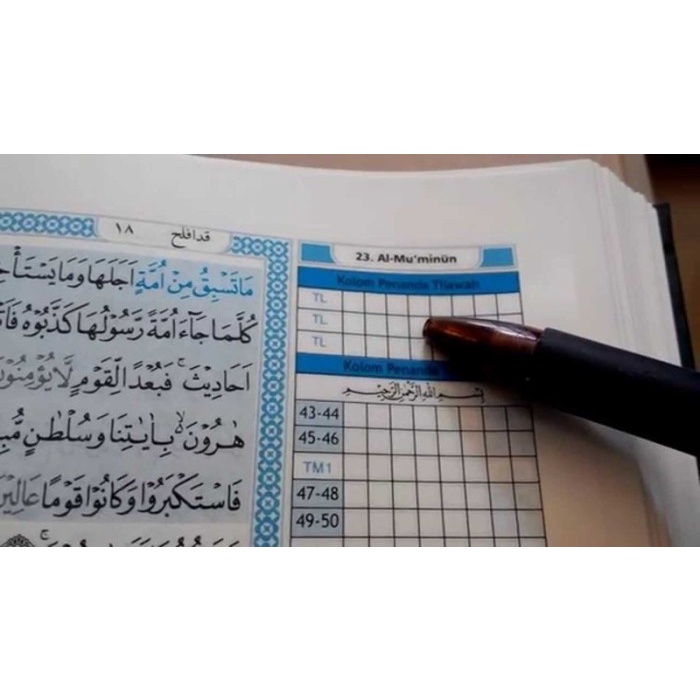 قدافلح ١٨
مَاتَسْبِقُ مِنْ اُمَّةٍ اَجَلَهَا وَمَا يَسْتَأْخِ
كُلَّمَا جَاۤءَ اُمَّةً رَّسُوْلُهَا كَذَّبُوْهُ فَاَتْ
اَحَادِيْثَۚ فَبُعْدًا لِّقَوْمٍ لَّا يُؤْمِنُوْنَ
هٰرُوْنَ ەۙ بِاٰيٰتِنَا وَسُلْطٰنٍ مُّبِ
فَاسْتَكْبَرُوْا وَكَانُوْا قَوْمًا عَالِيْنَ
23. Al-Mu'minūn
Kolom Penanda Tilawah
TL
TL
TL
Kolom Penanda
بِسْمِ اللهِ الرَّحْمٰنِ الرَّحِيْمِ
43-44
45-46
TM1
47-48
49-50